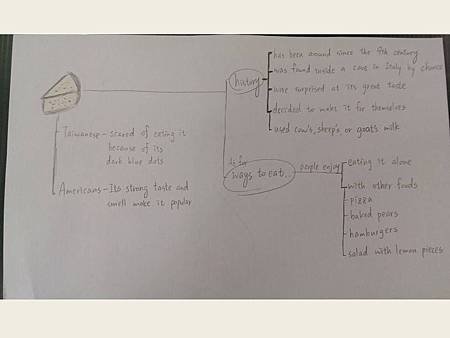 Taiwanese - scared of eating it
because of its
dark blue dots
Americans - Its strong taste and
smell make it popular
history
has been around since the 9th century
was found inside a cave in Italy by chance
were surprised at its great taste
decided to make it for themselves
used cow's, sheep's, or goat's milk
As for
ways to eat...
people enjoy
eating it alone
with other foods
pizza
baked pears
hamburgers
salad with lemon pieces